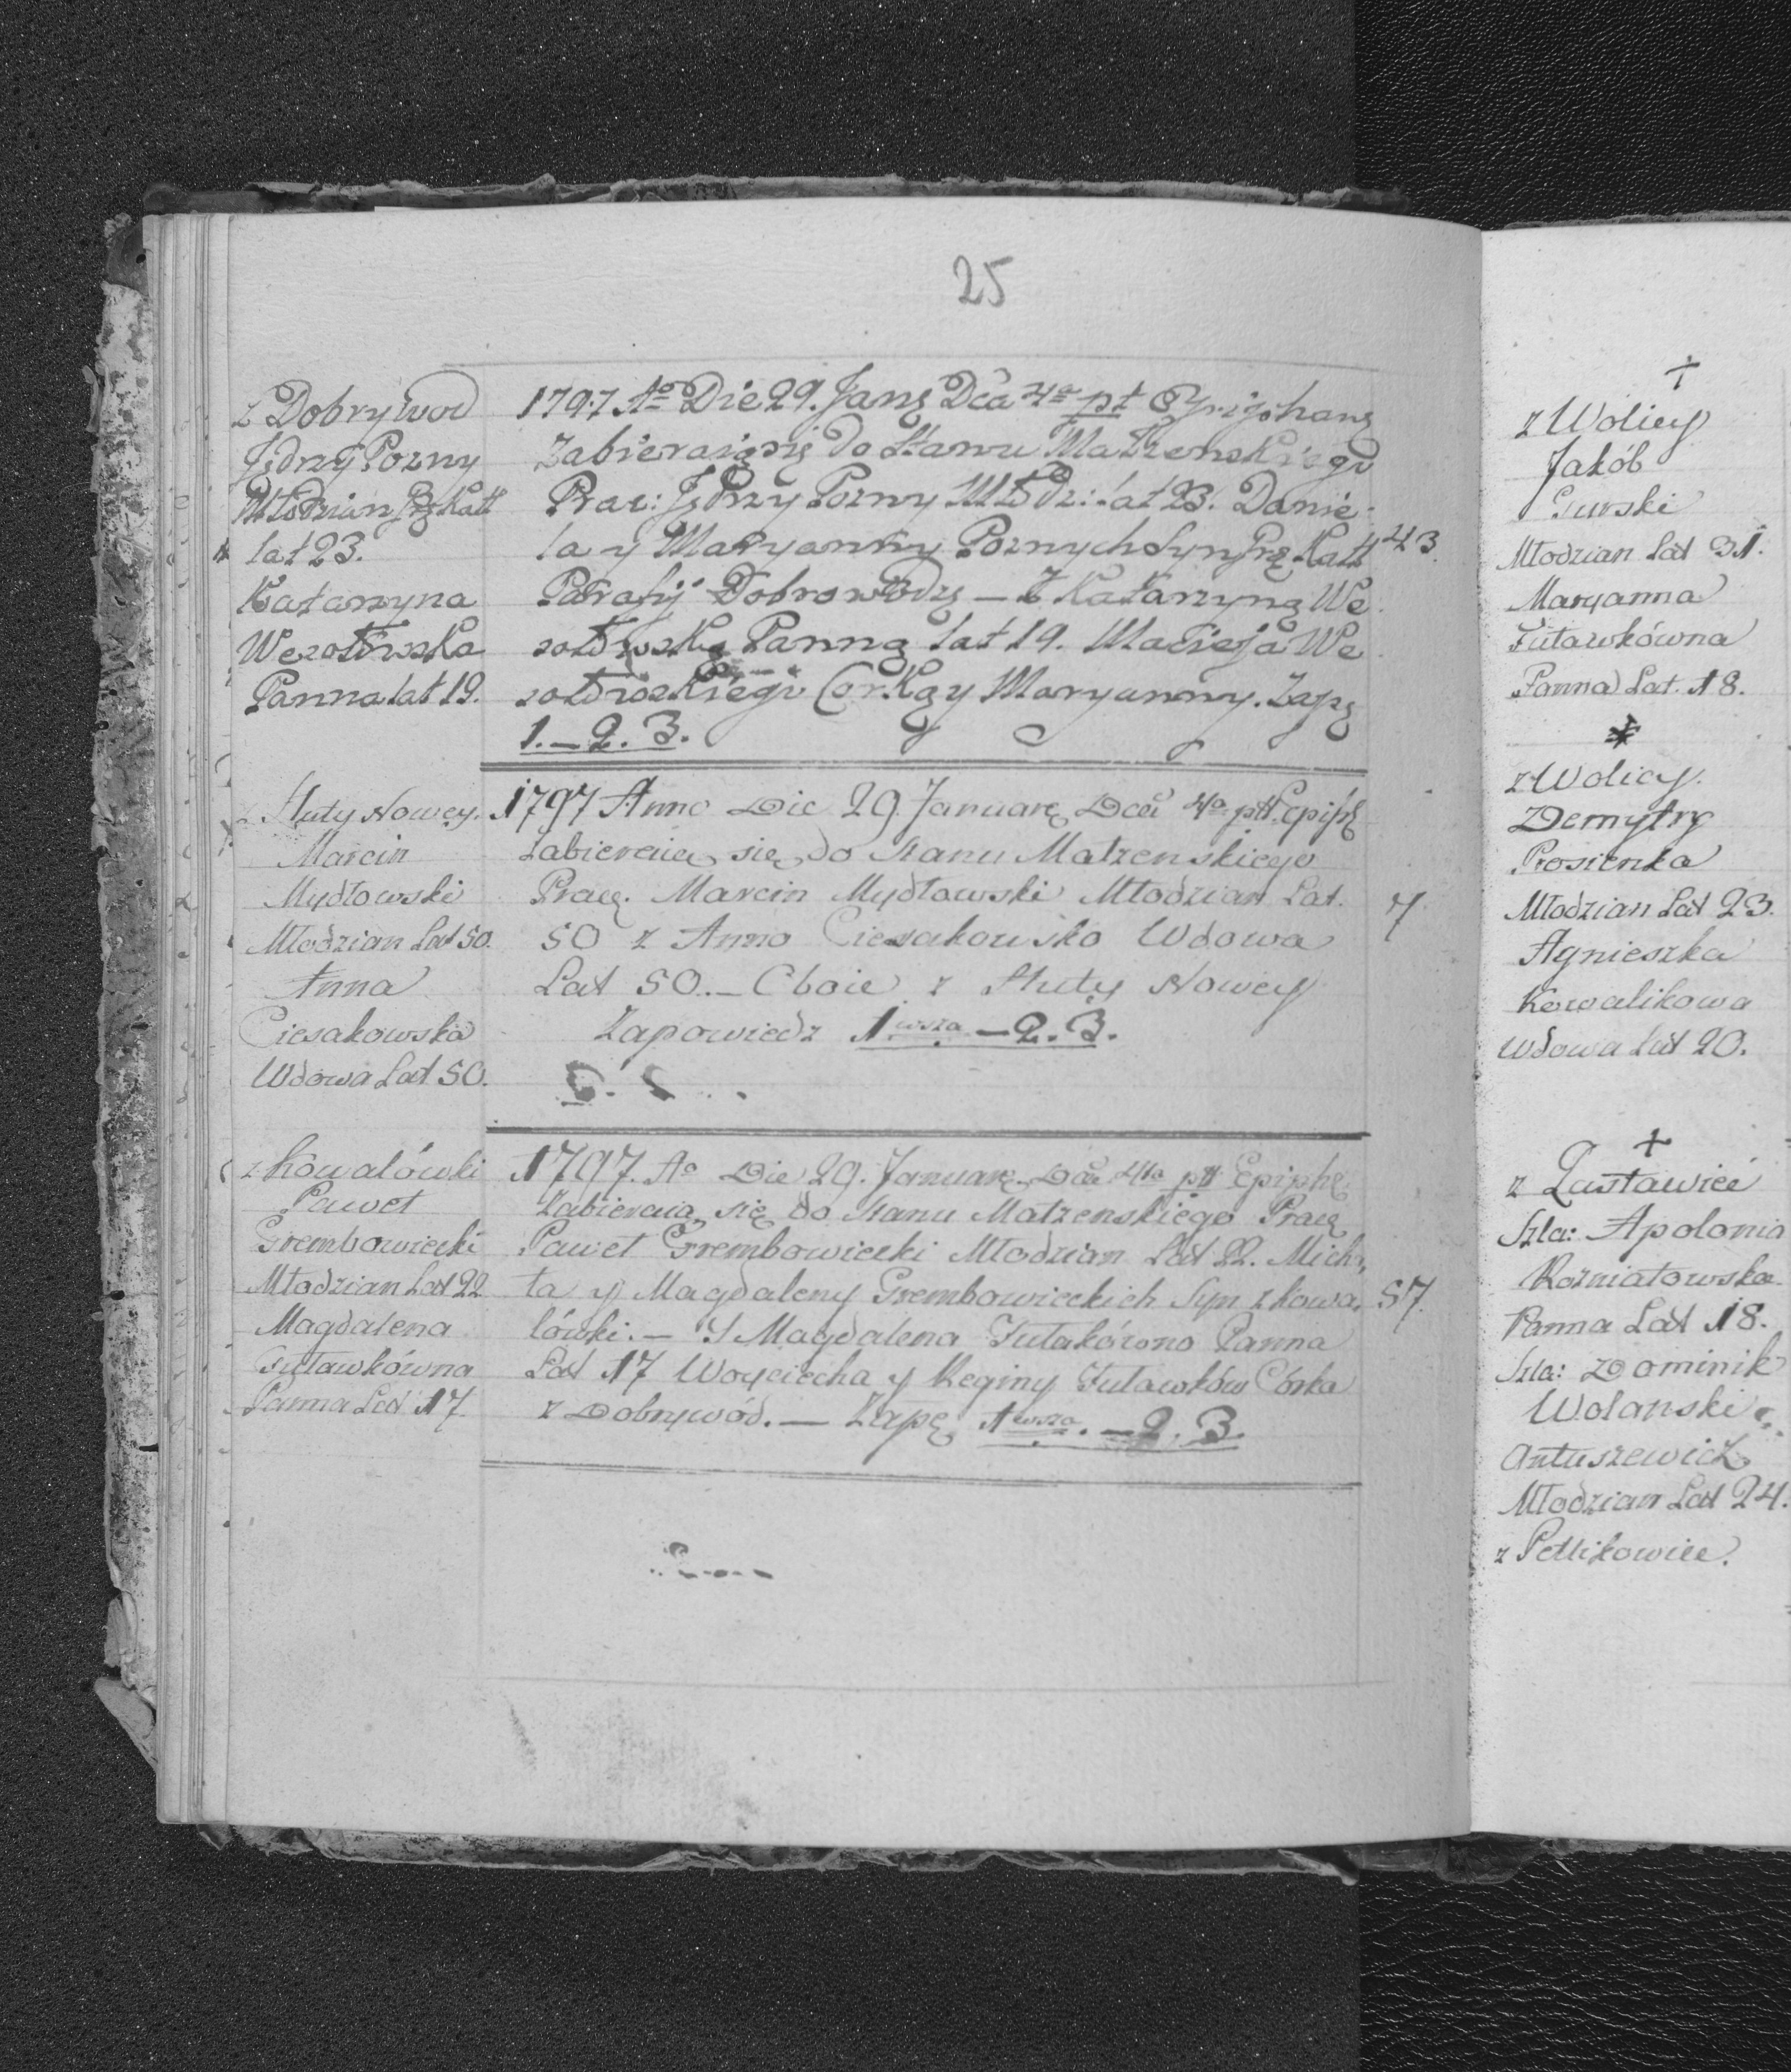 25
z Dobrywod
Jędrzy Pozny
Młodzian Rz Katt
lat 23.
Katarzyna
Wesołowska
Panna lat 19.
1797 Ao Die 29. Janę Dca 4a pt Epiphanę
Zabieraią się do Stanu Małżenskiego
Prac: Jędrzy Pozny Młodz: lat 23. Danie-
la y Maryanny Poznych Syn Rz Katt
43
Parafij Dobrowody — Z Katarzyną We
sołowską Panną lat 19. Macieja We
sołowskiego Corką y Maryanny. Zapę
1. — 2. 3.
z Huty Nowey.
Marcin
Mydłowski
Młodzian Lat 50.
Anna
Ciesakowska
Wdowa Lat 50.
1797 Anno Die 29 Januarę Dca 4a ptt Epiphę
Zabieraią się do stanu Małżenskiego
Pracę. Marcin Mydłowski Młodzian Lat.
7.
50 z Anno Ciesakowsko Wdowa
Lat 50. — Oboie z Huty Nowey
Zapowiedz 1wsza — 2. 3.
z Kowalówki
Paweł
Grembowiecki
Młodzian Lat 22
Magdalena
Futawkówna
Panna Lat 17.
1797. Ao Die 29. Januarę Dca 4ta ptt Epiphę.
Zabieraią się do stanu Małżenskiego Pracę
Paweł Grembowiecki Młodzian Lat 22. Micha,
ła y Magdaleny Grembowieckich Syn z Kowa,
57.
lówki. — Y Magdalena Futakówno Panna
Lat 17 Woyciecha y Reginy Futawków Córka
z Dobrywód. — Zapę 1wsza. — 2. 3.
+
z Wolicy
Jakób
Gurski
Młodzian Lat 31.
Maryanna
Futawkówna
Panna Lat. 18.
*
z Wolicy.
Demytry
Prosienka
Młodzian Lat 23.
Agnieszka
Kowalikowa
Wdowa Lat 20.
+
z Zastawiec
Szla: Apolonia
Rozniatowska
Panna Lat 18.
Szla: Dominik
Wolanski
Antuszewicz
Młodzian Lat 24.
z Petlikowiec.